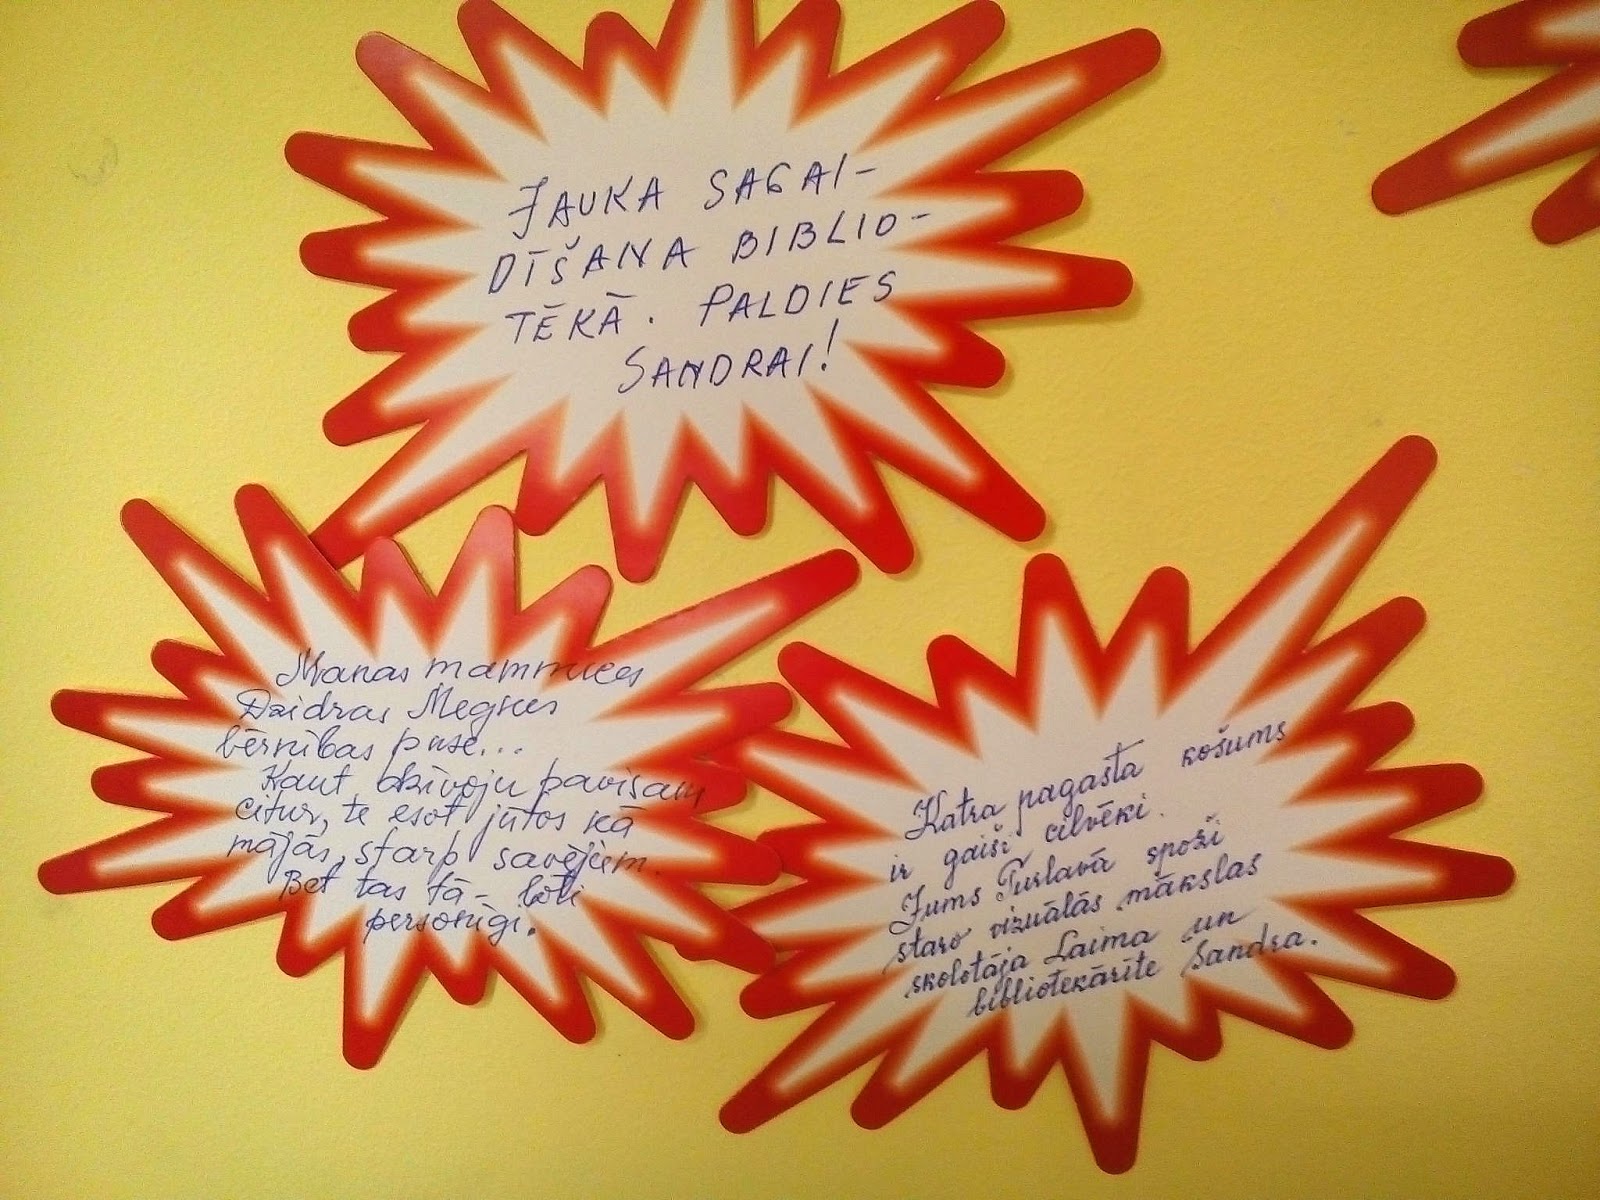 JAUKA SAGAI-
DĪŠANA BIBLIO-
TĒKĀ. PALDIES
SANDRAI!
Manas mammuces
Dzidras Megnes
bērnības puse...
Kaut dzīvoju pavisam
citur, te esot jūtos kā
mājās, starp savējiem.
Bet tas tā - ļoti
personīgi.
Katra pagasta košums
ir gaiši cilvēki.
Jums Turlavā spoži
staro vizuālās mākslas
skolotāja Laima un
bibliotekārīte Sandra.